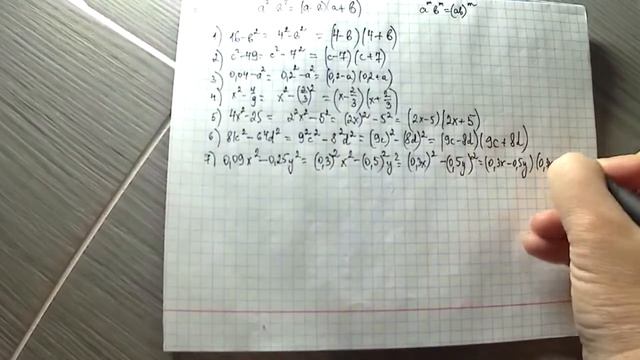 a² b² = (a-b)(a+b)    aᵐ bᵐ = (ab)ᵐ
1) 16-b² = 4²-b² = (4-b)(4+b)
2) c²-49 = c²-7² = (c-7)(c+7)
3) 0,04-a² = 0,2²-a² = (0,2-a)(0,2+a)
4) x²-4/9 = x²-(2/3)² = (x-2/3)(x+2/3)
5) 4x²-25 = 2²x²-5² = (2x)²-5² = (2x-5)(2x+5)
6) 81c²-64d² = 9²c²-8²d² = (9c)²-(8d)² = (9c-8d)(9c+8d)
7) 0,09x²-0,25y² = (0,3)²x²-(0,5)²y² = (0,3x)²-(0,5y)² = (0,3x-0,5y)(0,3